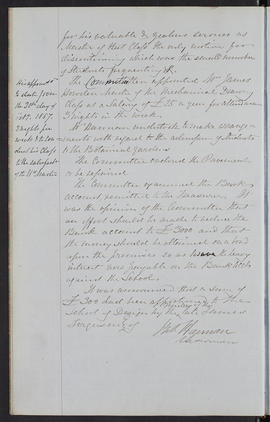 for his valuable & zealous services as
Master of that Class the only motive for
discontinuing which was the small number
of Students frequenting it.
The Committee appointed Mr James
Master of the Mechanical Drawing
Class at a Salary of £25 a year for attendance
3 nights in the week.
His appointment
to date from
the 21st day of
Feby. 1857.
3 nights per
week & to
his Class
to the satisfaction
of the Hd Master
Mr Harman undertook to make arrangements
with regard to the admission of Students
to the Botanical Gardens
The Committee ordered the Pavement
to be repaired
The Committee examined the Bank
account remitted to the Treasurer. It
was the opinion of the Committee that
an effort should be made to reduce the
Bank account to £3000 and that
the money should be obtained on a bond
upon the premises so as to save the heavy
interest now payable on the Bank Acct
against the School.
It was announced that a sum of
£300 had been to the
School of Design by the late James
Chairman